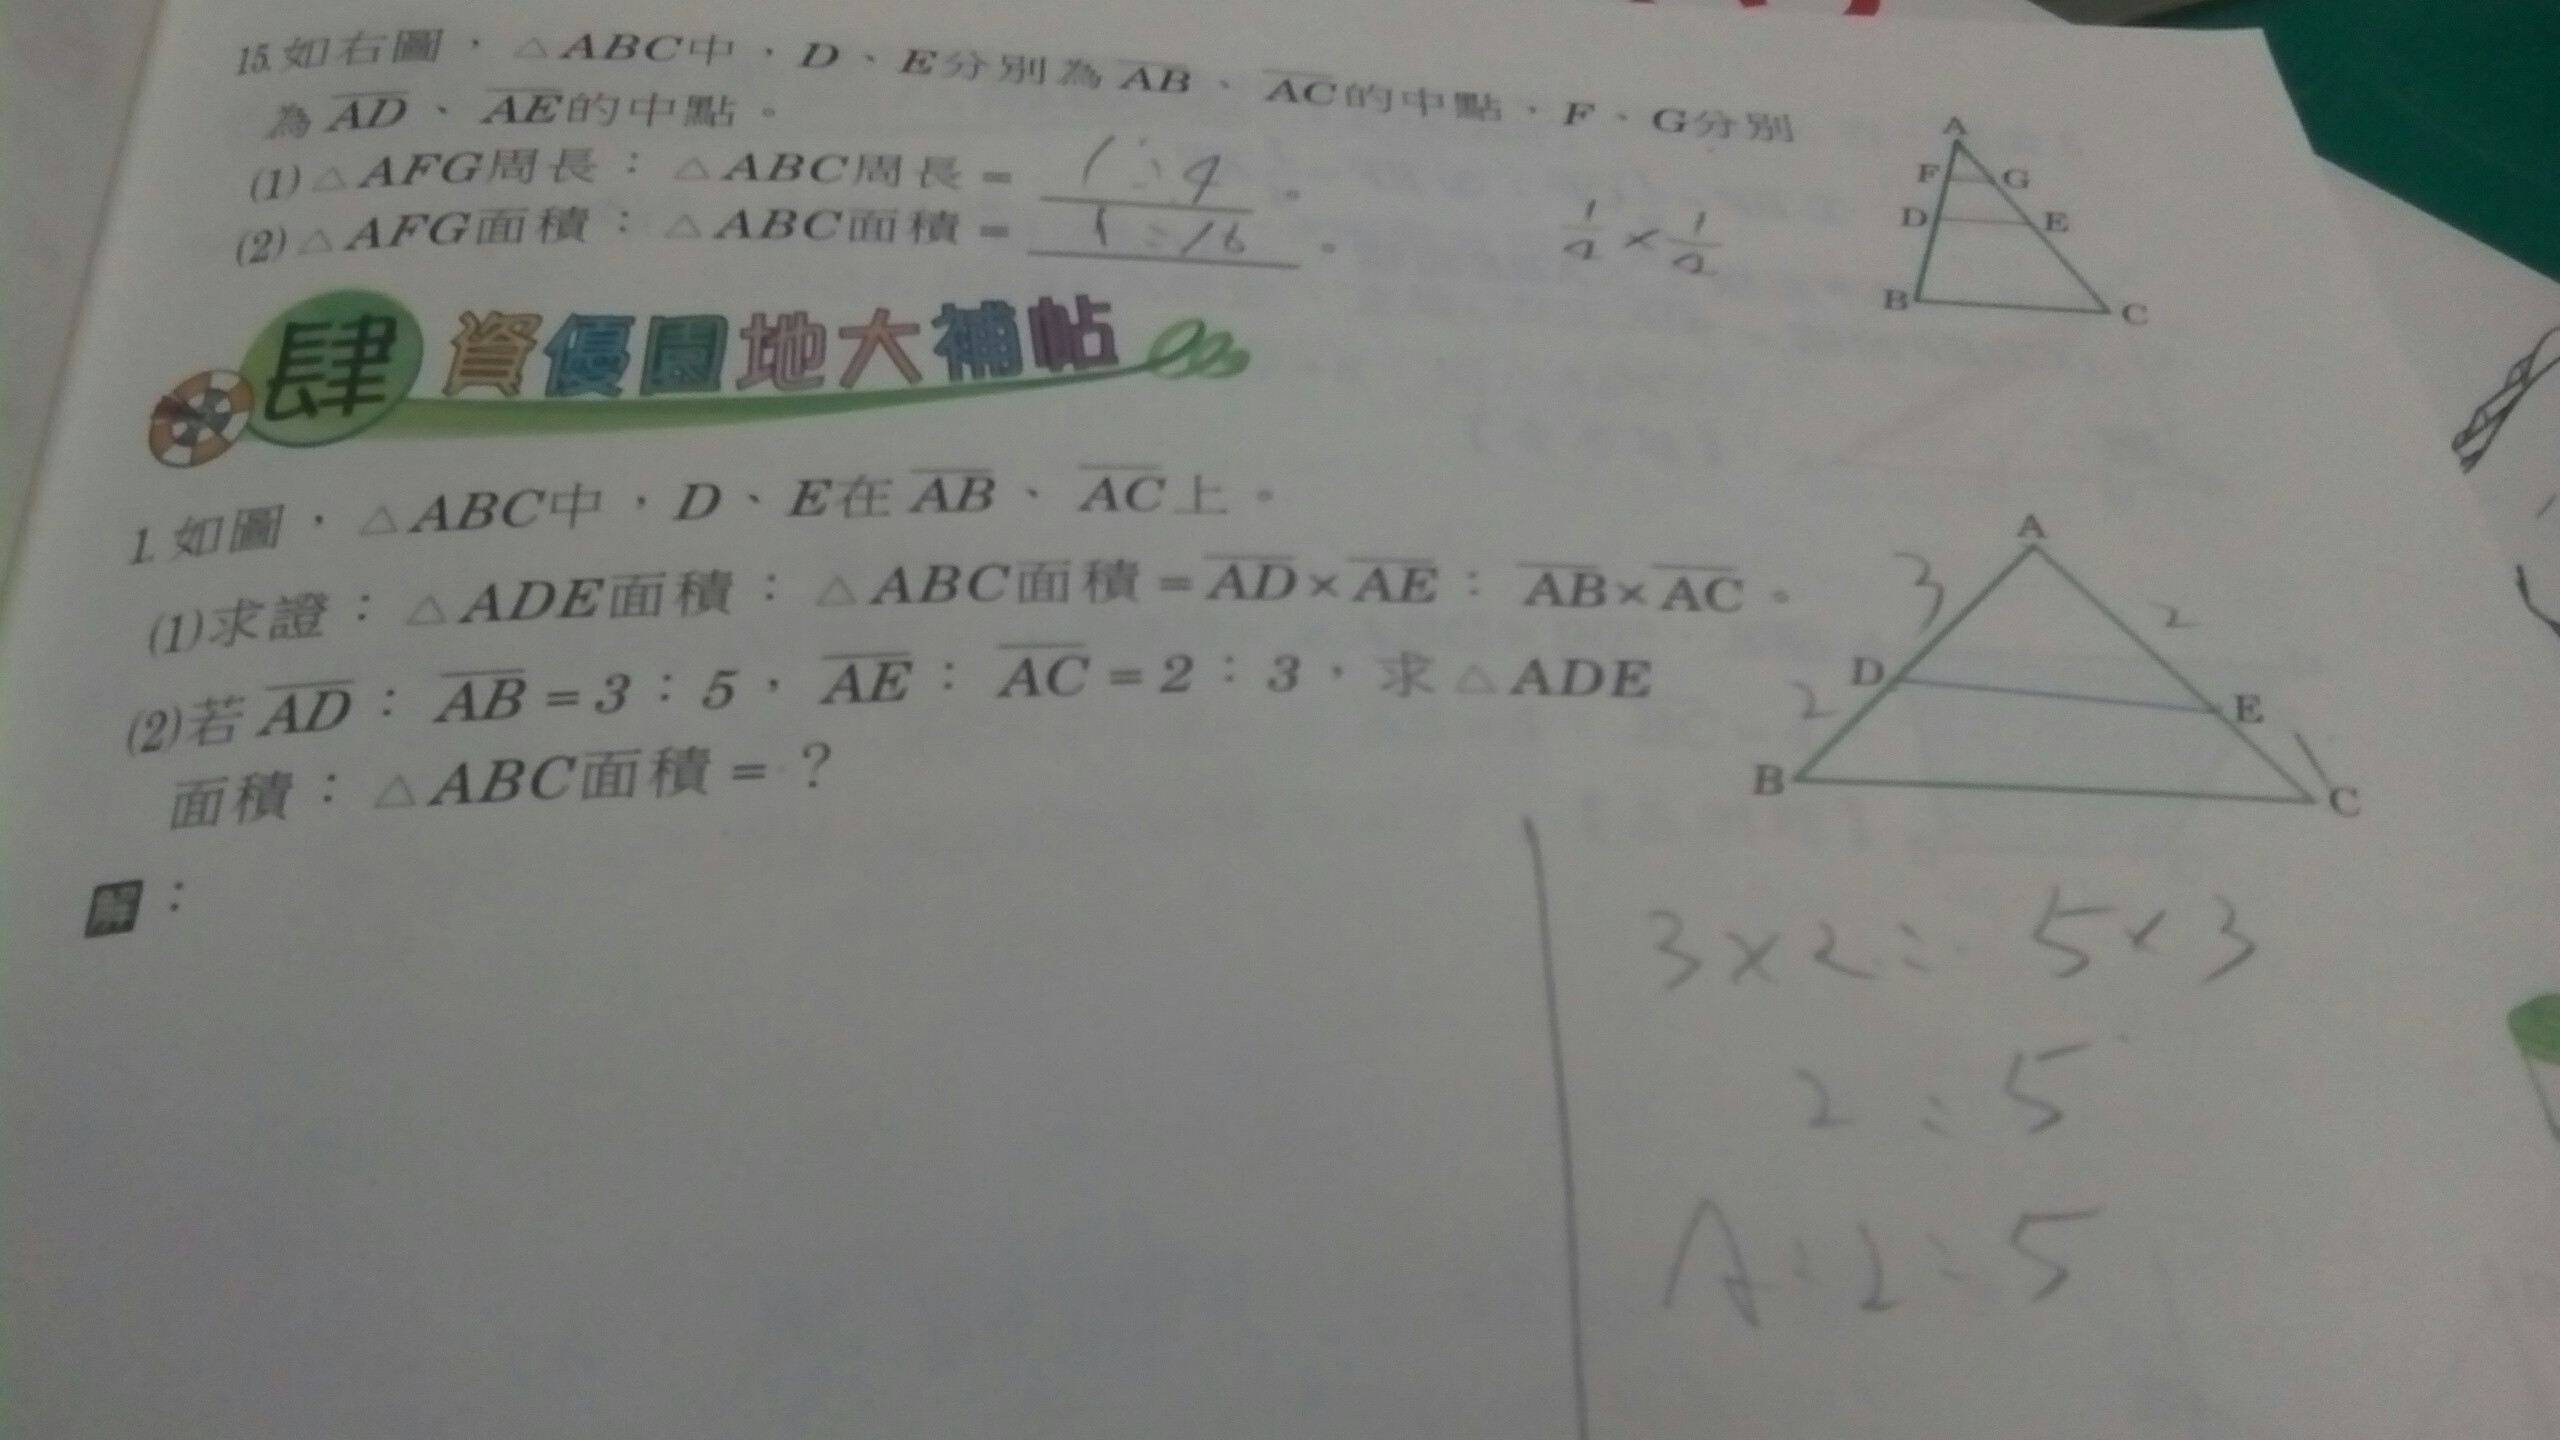 15.如右圖，△ABC中，D、E分別為AB、AC的中點，F、G分別
為AD、AE的中點。
(1)△AFG周長：△ABC周長=1:4。
(2)△AFG面積：△ABC面積=1:16。
1/4×1/4
A
F G
D E
B C
肆 資優園地大補帖
1.如圖，△ABC中，D、E在AB、AC上。
(1)求證：△ADE面積：△ABC面積=AD×AE：AB×AC。
(2)若AD：AB=3：5，AE：AC=2：3，求△ADE
面積：△ABC面積=？
A
3 2
D E
2 1
B C
解：
3×2:5×3
2:5
A:2:5